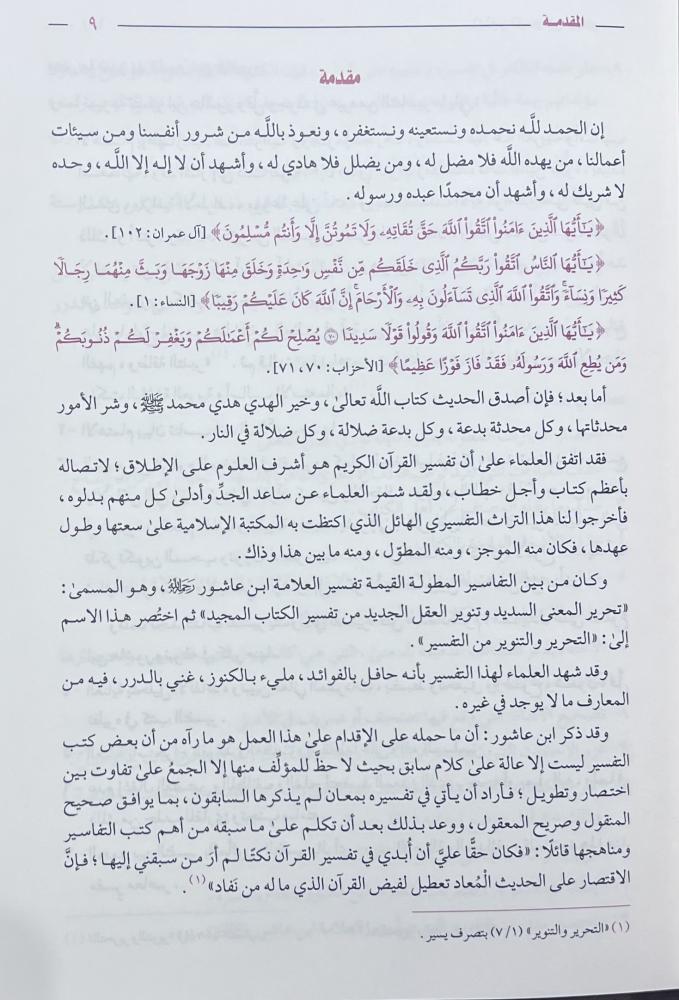 المقدمـة
٩
مقدمة
إن الحمد للَّه نحمده ونستعينه ونستغفره ، ونعوذ باللَّه من شرور أنفسنا ومن سيئات
أعمالنا ، من يهده اللَّه فلا مضل له ، ومن يضلل فلا هادي له ، وأشهد أن لا إله إلا اللَّه ، وحده
لا شريك له ، وأشهد أن محمدًا عبده ورسوله .
﴿يَٰٓأَيُّهَا ٱلَّذِينَ ءَامَنُوا۟ ٱتَّقُوا۟ ٱللَّهَ حَقَّ تُقَاتِهِۦ وَلَا تَمُوتُنَّ إِلَّا وَأَنتُم مُّسْلِمُونَ﴾ [آل عمران: ١٠٢] .
﴿يَٰٓأَيُّهَا ٱلنَّاسُ ٱتَّقُوا۟ رَبَّكُمُ ٱلَّذِى خَلَقَكُم مِّن نَّفْسٍ وَٰحِدَةٍ وَخَلَقَ مِنْهَا زَوْجَهَا وَبَثَّ مِنْهُمَا رِجَالًا
كَثِيرًا وَنِسَآءً ۚ وَٱتَّقُوا۟ ٱللَّهَ ٱلَّذِى تَسَآءَلُونَ بِهِۦ وَٱلْأَرْحَامَ ۚ إِنَّ ٱللَّهَ كَانَ عَلَيْكُمْ رَقِيبًا﴾ [النساء: ١] .
﴿يَٰٓأَيُّهَا ٱلَّذِينَ ءَامَنُوا۟ ٱتَّقُوا۟ ٱللَّهَ وَقُولُوا۟ قَوْلًا سَدِيدًا ۝٧٠ يُصْلِحْ لَكُمْ أَعْمَٰلَكُمْ وَيَغْفِرْ لَكُمْ ذُنُوبَكُمْ ۗ
وَمَن يُطِعِ ٱللَّهَ وَرَسُولَهُۥ فَقَدْ فَازَ فَوْزًا عَظِيمًا﴾ [الأحزاب: ٧٠، ٧١] .
أما بعد ؛ فإن أصدق الحديث كتاب اللَّه تعالىٰ ، وخير الهدي هدي محمد ﷺ ، وشر الأمور
محدثاتها ، وكل محدثة بدعة ، وكل بدعة ضلالة ، وكل ضلالة في النار .
فقد اتفق العلماء علىٰ أن تفسير القرآن الكريم هو أشرف العلوم علىٰ الإطلاق ؛ لاتصاله
بأعظم كتاب وأجل خطاب ، ولقد شمر العلماء عن ساعد الجدِّ وأدلىٰ كل منهم بدلوه ،
فأخرجوا لنا هذا التراث التفسيري الهائل الذي اكتظت به المكتبة الإسلامية علىٰ سعتها وطول
عهدها ، فكان منه الموجز ، ومنه المطوّل ، ومنه ما بين هذا وذاك .
وكان من بين التفاسير المطولة القيمة تفسير العلامة ابن عاشور رَحِمَهُ ٱللَّهُ ، وهو المسمىٰ :
«تحرير المعنى السديد وتنوير العقل الجديد من تفسير الكتاب المجيد» ثم اختُصر هذا الاسم
إلىٰ : «التحرير والتنوير من التفسير» .
وقد شهد العلماء لهذا التفسير بأنه حافل بالفوائد ، مليء بالكنوز ، غني بالدرر ، فيه من
المعارف ما لا يوجد في غيره .
وقد ذكر ابن عاشور : أن ما حمله على الإقدام علىٰ هذا العمل هو ما رآه من أن بعض كتب
التفسير ليست إلا عالة علىٰ كلام سابق بحيث لا حظَّ للمؤلِّف منها إلا الجمعُ علىٰ تفاوت بين
اختصار وتطويل ؛ فأراد أن يأتي في تفسيره بمعان لم يذكرها السابقون ، بما يوافق صحيح
المنقول وصريح المعقول ، ووعد بذلك بعد أن تكلم علىٰ ما سبقه من أهم كتب التفاسير
ومناهجها قائلًا : «فكان حقًّا عليَّ أن أُبدي في تفسير القرآن نكتًا لم أرَ من سبقني إليها ؛ فإنَّ
الاقتصار على الحديث الْمُعاد تعطيل لفيض القرآن الذي ما له من نَفاد» (١) .
(١) «التحرير والتنوير» (٧/١) بتصرف يسير .